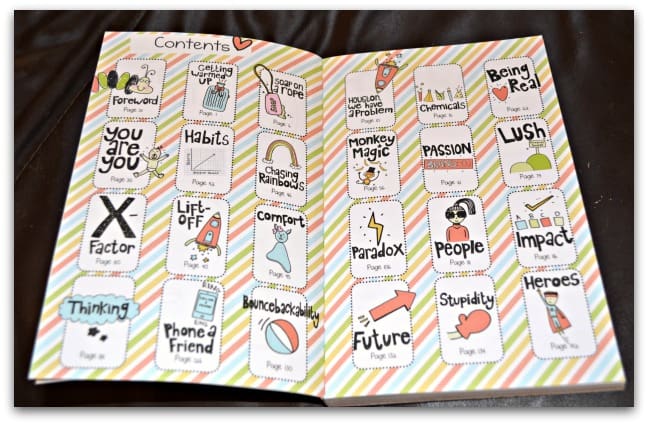 Contents
Foreword
Page
Getting
warmed
up
Page 1
Soap on
a rope
Soap
Page
you
are
you
Page
Habits
Page
Chasing
Rainbows
Page
X-
Factor
Page 80
Lift-
off
Page 90
Comfort
Page 95
Thinking
Page
RING
RING
Phone a
Friend
Page
Bouncebackability
Page 130
Houston,
we have
a Problem
Page 10
Chemicals
Page 15
Being
Real
Page
Monkey
Magic
Page 56
PASSION
Page 61
Lush
Page 74
Paradox
Page 106
People
Page
A B C D
Impact
Page
Future
Page
Stupidity
Page 134
Heroes
Page